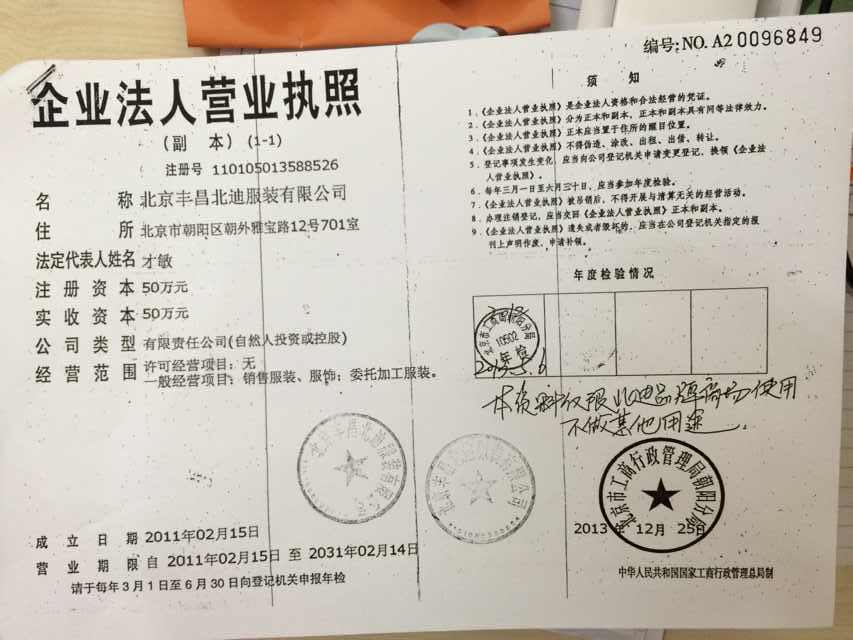 编号:NO. A2 0096849
企业法人营业执照
(副 本)(1-1)
注册号 110105013588526
名 称 北京丰昌北迪服装有限公司
住 所 北京市朝阳区朝外雅宝路12号701室
法定代表人姓名 才敏
注 册 资 本 50万元
实 收 资 本 50万元
公 司 类 型 有限责任公司(自然人投资或控股)
经 营 范 围 许可经营项目:无
一般经营项目:销售服装、服饰;委托加工服装。
成 立 日 期 2011年02月15日
营 业 期 限 自 2011年02月15日 至 2031年02月14日
请于每年3月1日至6月30日向登记机关申报年检
须 知
1.《企业法人营业执照》是企业法人资格和合法经营的凭证。
2.《企业法人营业执照》分为正本和副本,正本和副本具有同等法律效力。
3.《企业法人营业执照》正本应当置于住所的醒目位置。
4.《企业法人营业执照》不得伪造、涂改、出租、出借、转让。
5.登记事项发生变化,应当向公司登记机关申请变更登记,换领《企业法
人营业执照》。
6.每年三月一日至六月三十日,应当参加年度检验。
7.《企业法人营业执照》被吊销后,不得开展与清算无关的经营活动。
8.办理注销登记,应当交回《企业法人营业执照》正本和副本。
9.《企业法人营业执照》遗失或者毁坏的,应当在公司登记机关指定的报
刊上声明作废,申请补领。
年度检验情况
北京市工商局朝阳分局
10502
年检
本资料仅限北迪品牌商场使用
不做其他用途.
北京丰昌北迪服装有限公司
北京丰昌北迪服装有限公司
北京市工商行政管理局朝阳分局
2013 年 12月 25日
中华人民共和国国家工商行政管理总局制